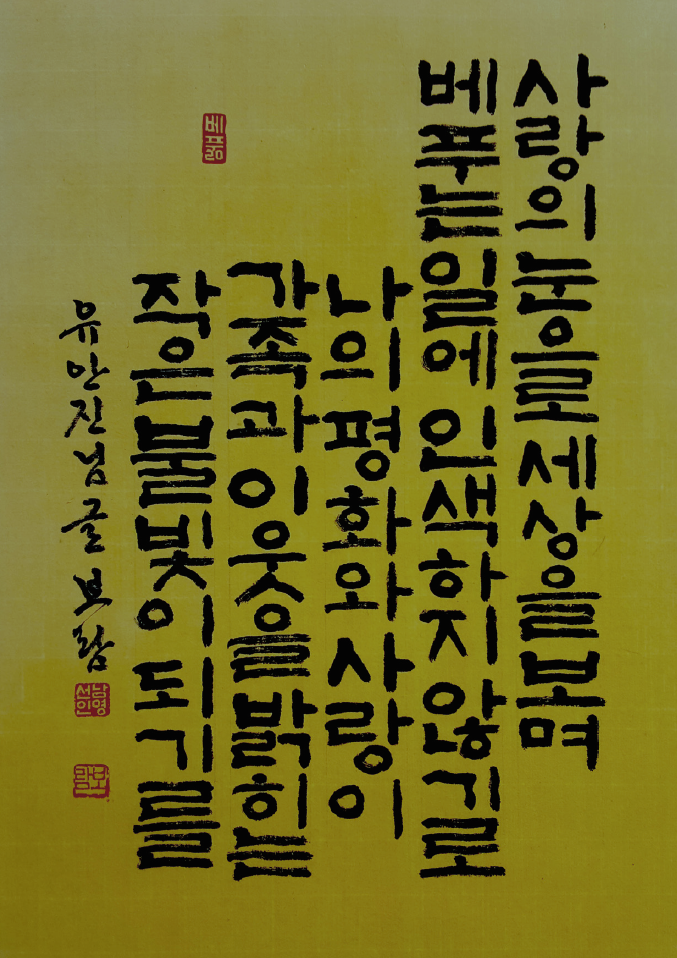 사랑의 눈으로 세상을 보며
베푸는 일에 인색하지 않기로
나의 평화와 사랑이
가족과 이웃을 밝히는
작은 불빛이 되기를
유안진님 글 보람
베풂
남영
선인
보람